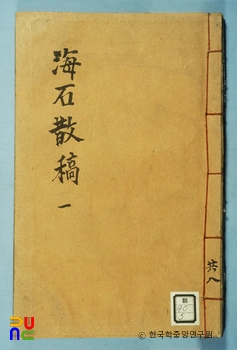 海石散稿 一
共八
© 한국학중앙연구원